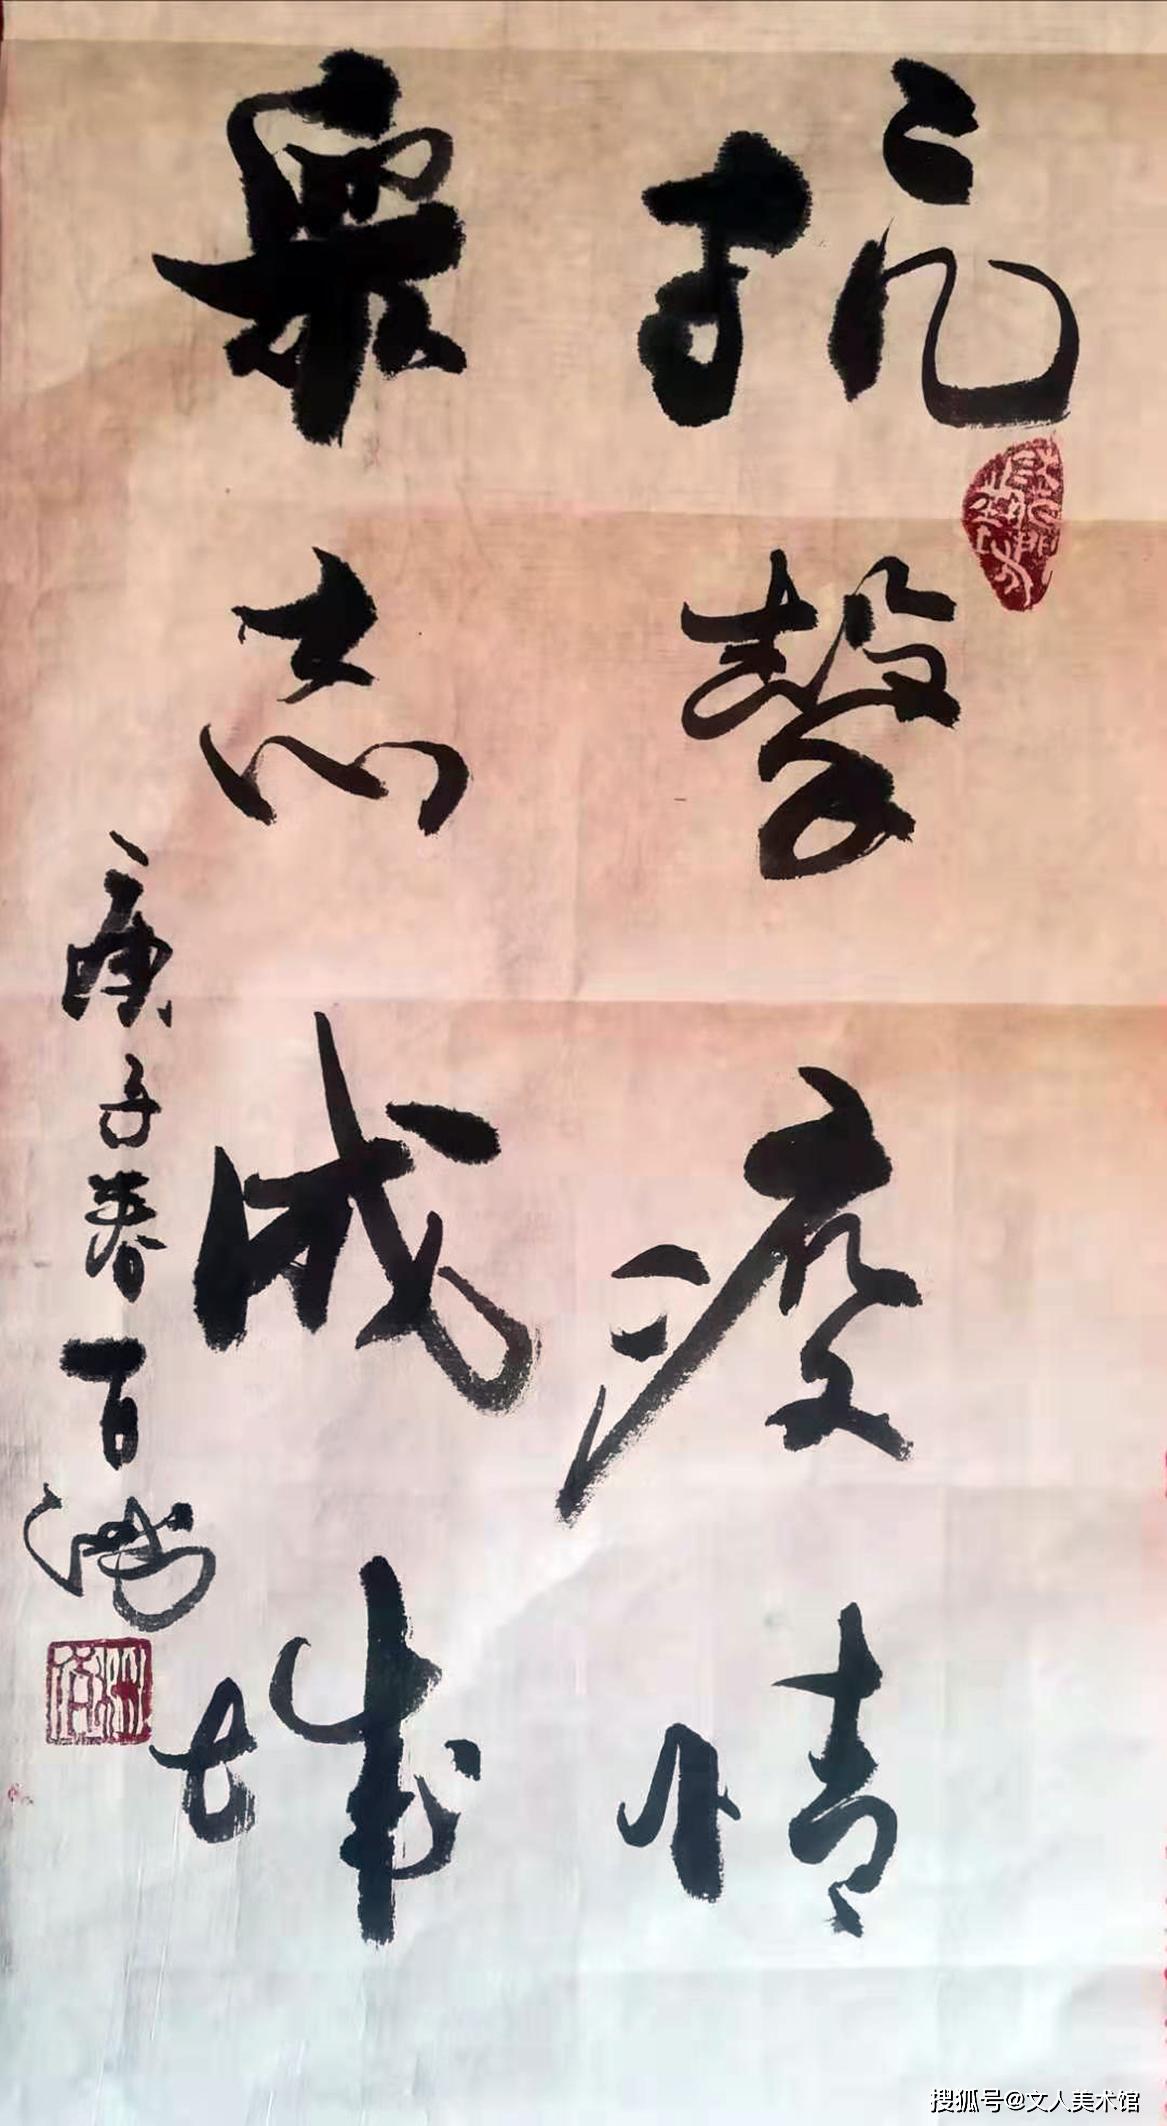 抗擊疫情
眾志成城
庚子春百鴻
搜狐号@文人美术馆